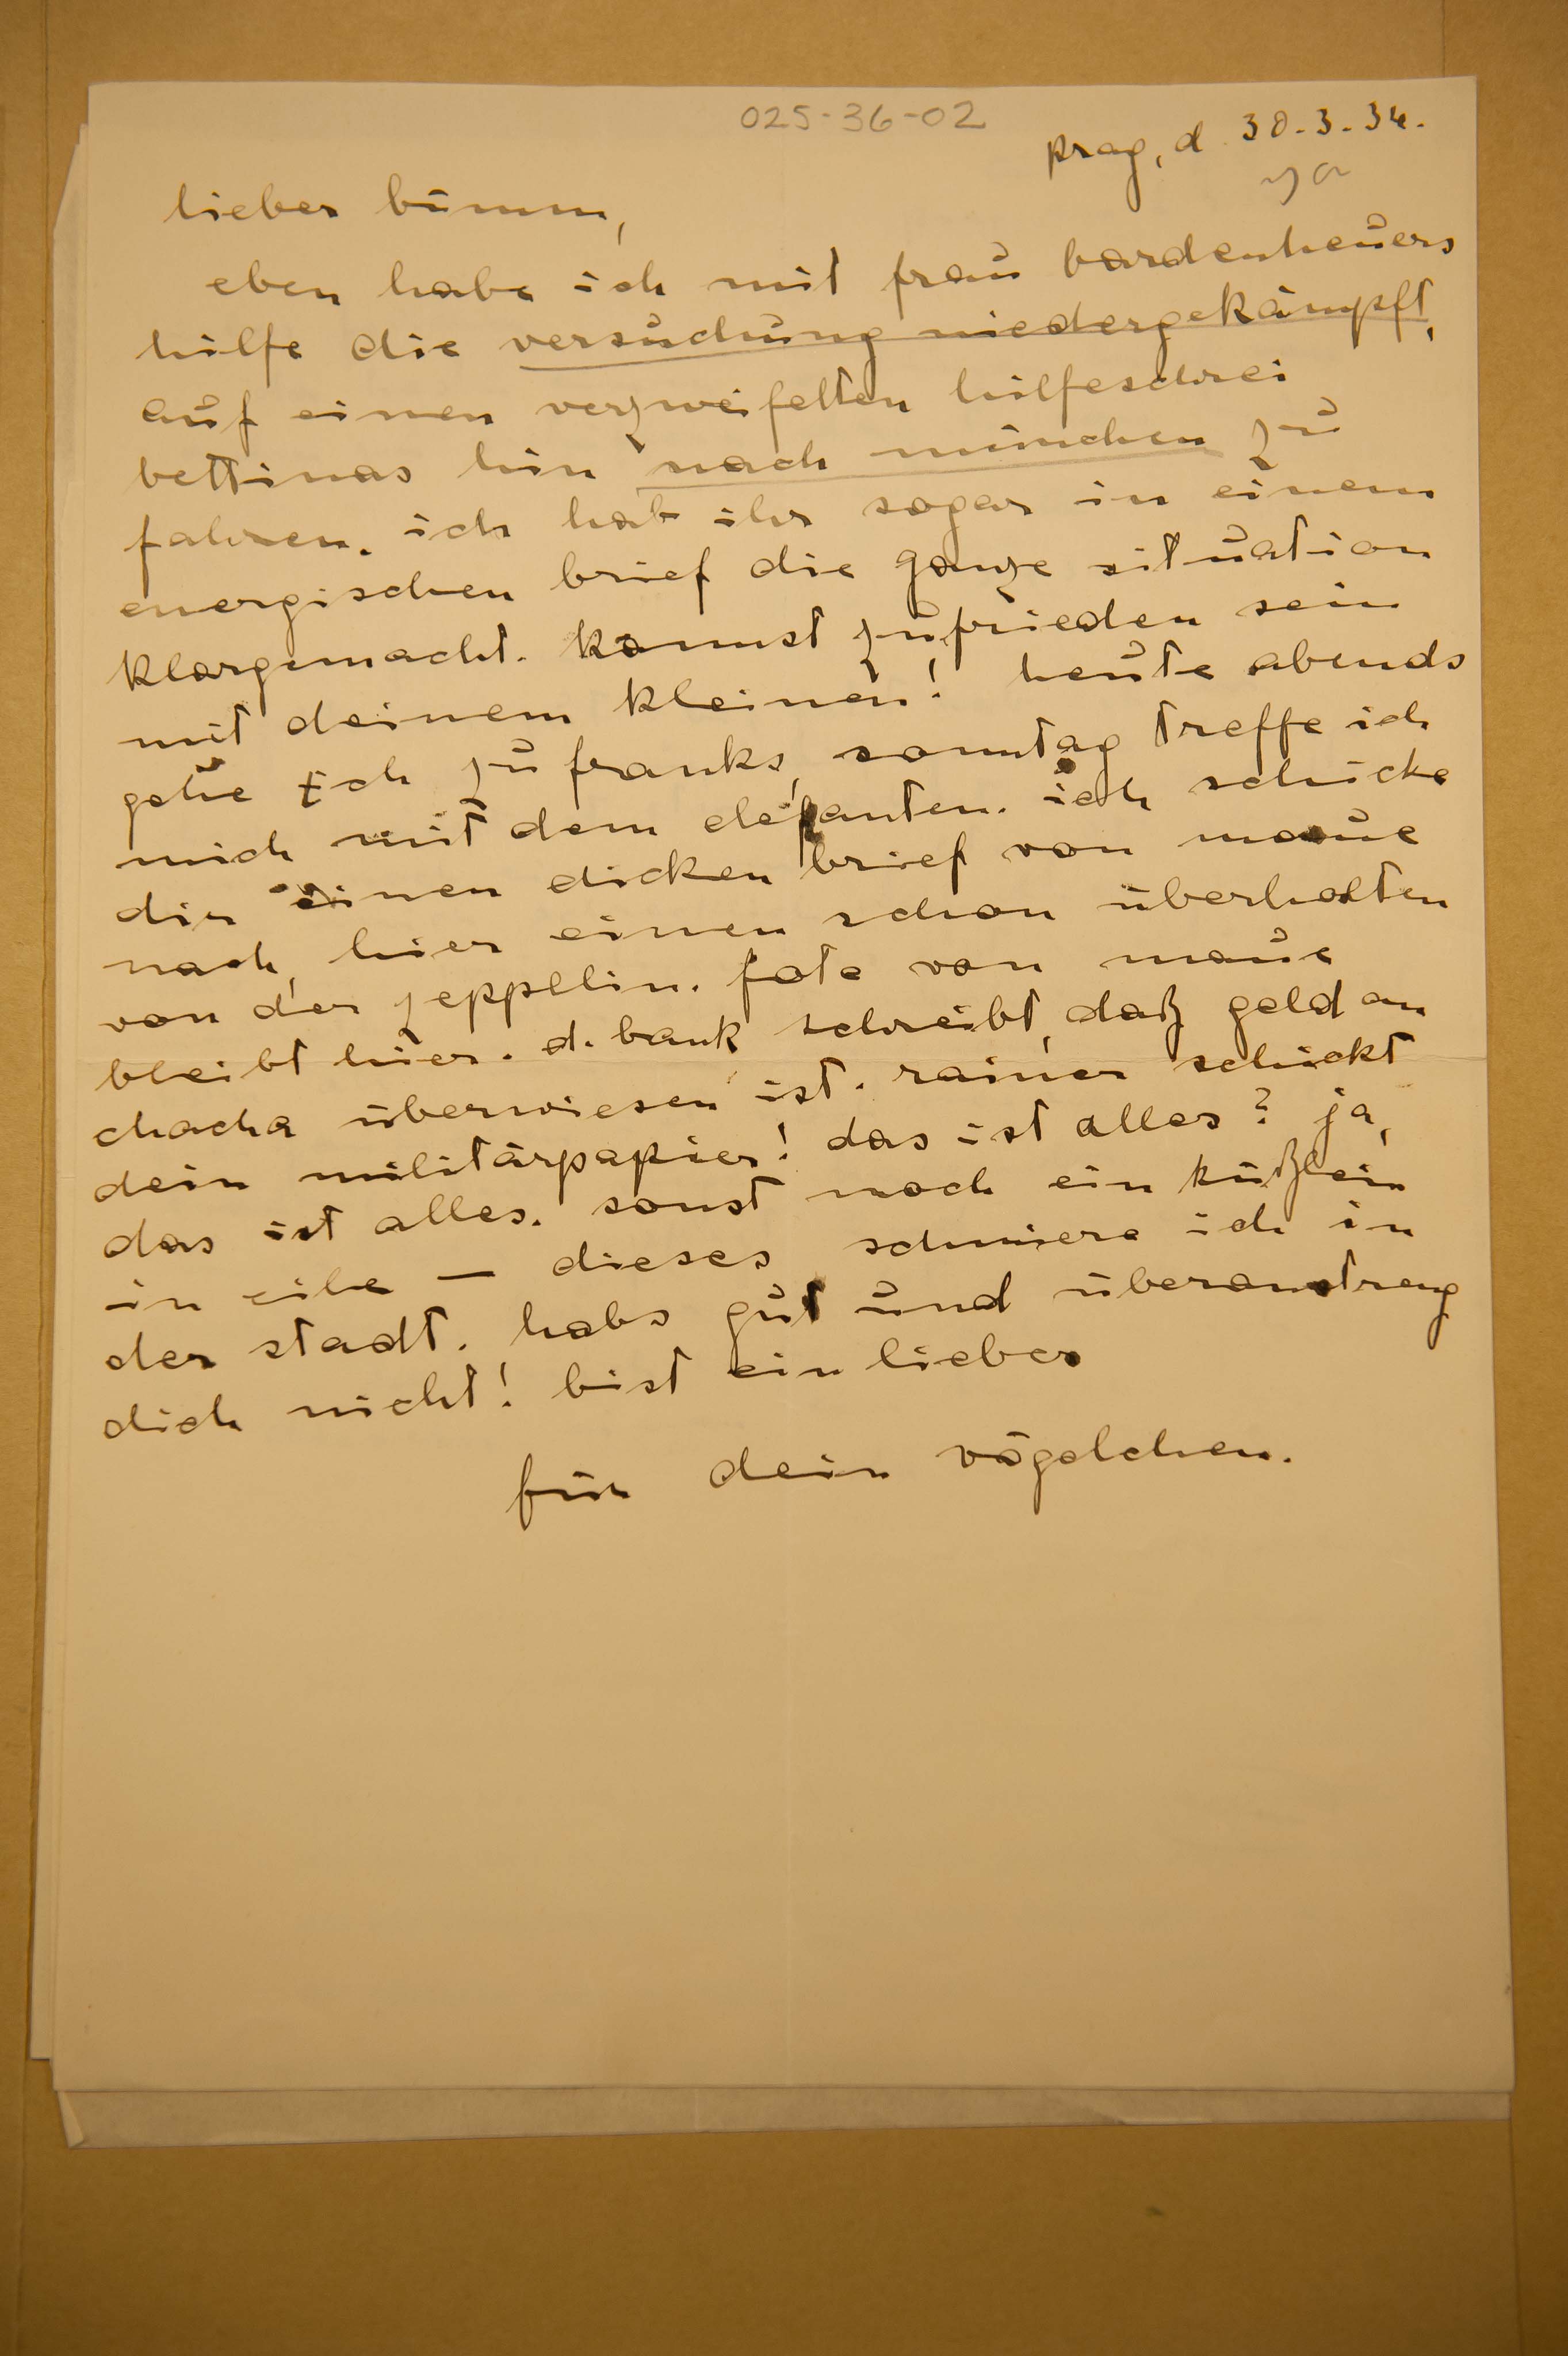 025-36-02
prag, d. 30.3.34.
lieber bumm,
eben habe ich mit frau bardenheuers
hilfe die versuchung niedergekämpft,
auf einen verzweifelten hilfeschrei
bettinas hin nach münchen zu
fahren. ich hab ihr sogar in einem
energischen brief die ganze situation
klargemacht. kannst zufrieden sein
mit deinem kleinen! heute abends
gehe ich zu franks, sonntag treffe ich
mich mit dem elefanten. ich schicke
dir einen dicken brief von maue
nach, hier einen schon überholten
von der zeppelin. foto von maue
bleibt hier. d. bank schreibt, daß geld an
chacha überwiesen ist. rainer schickt
dein militärpapier! das ist alles? ja,
das ist alles. sonst noch ein küßlein
in eile — dieses schmiere ich in
der stadt. habs gut und überanstreng
dich nicht! bist ein lieber
für dein vögelchen.